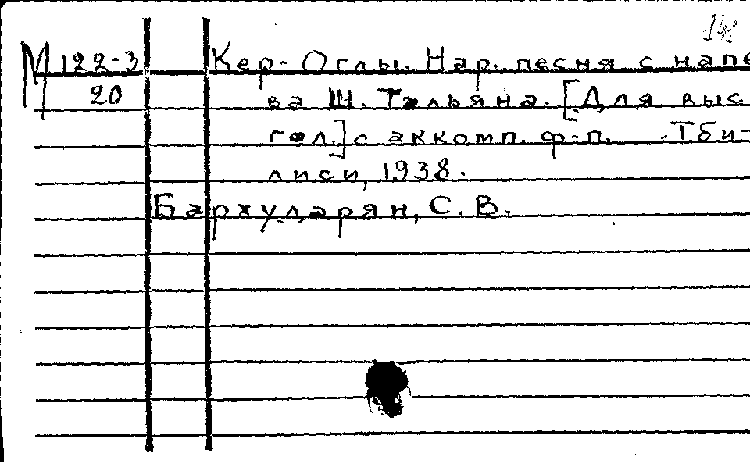 М 122-3 Кер-Оглы. Нар. песня с напе
20 ва Ш. Тальяна. [Для выс.
гол.] с аккомп. ф-п. Тби-
лиси, 1938.
Бархударян, С. В.